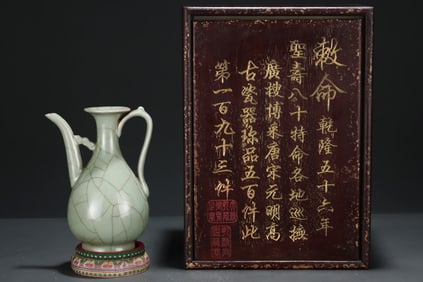 敕命 乾隆五十六年
聖壽八十特命各地巡撫
廣搜博采唐宋元明高
古瓷器珍品五百件此
第一百九十三件